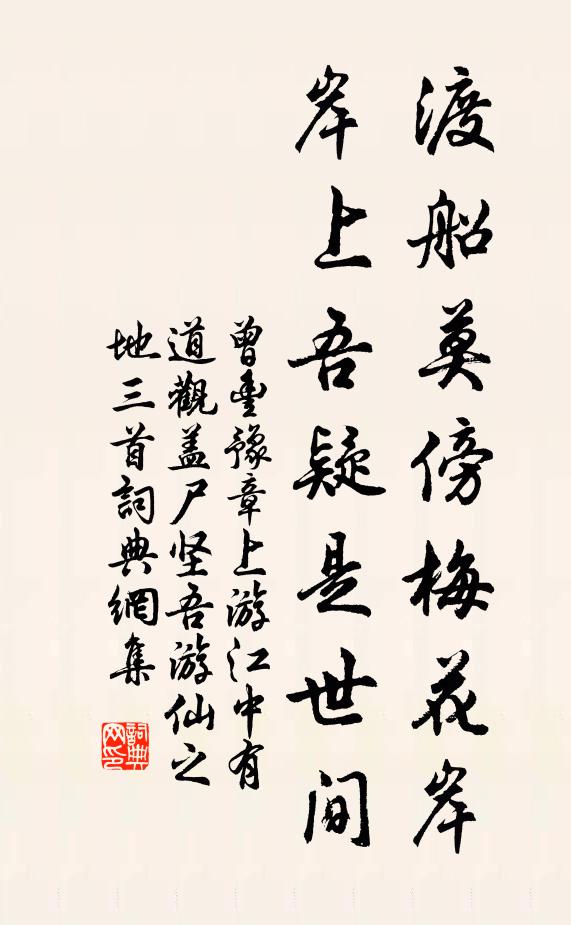 渡船莫傍梅花岸
岸上吾疑是世间
曾豊豫章上游江中有
道觀盖尸坚吾游仙之
地三首詞典網集
詞典网印